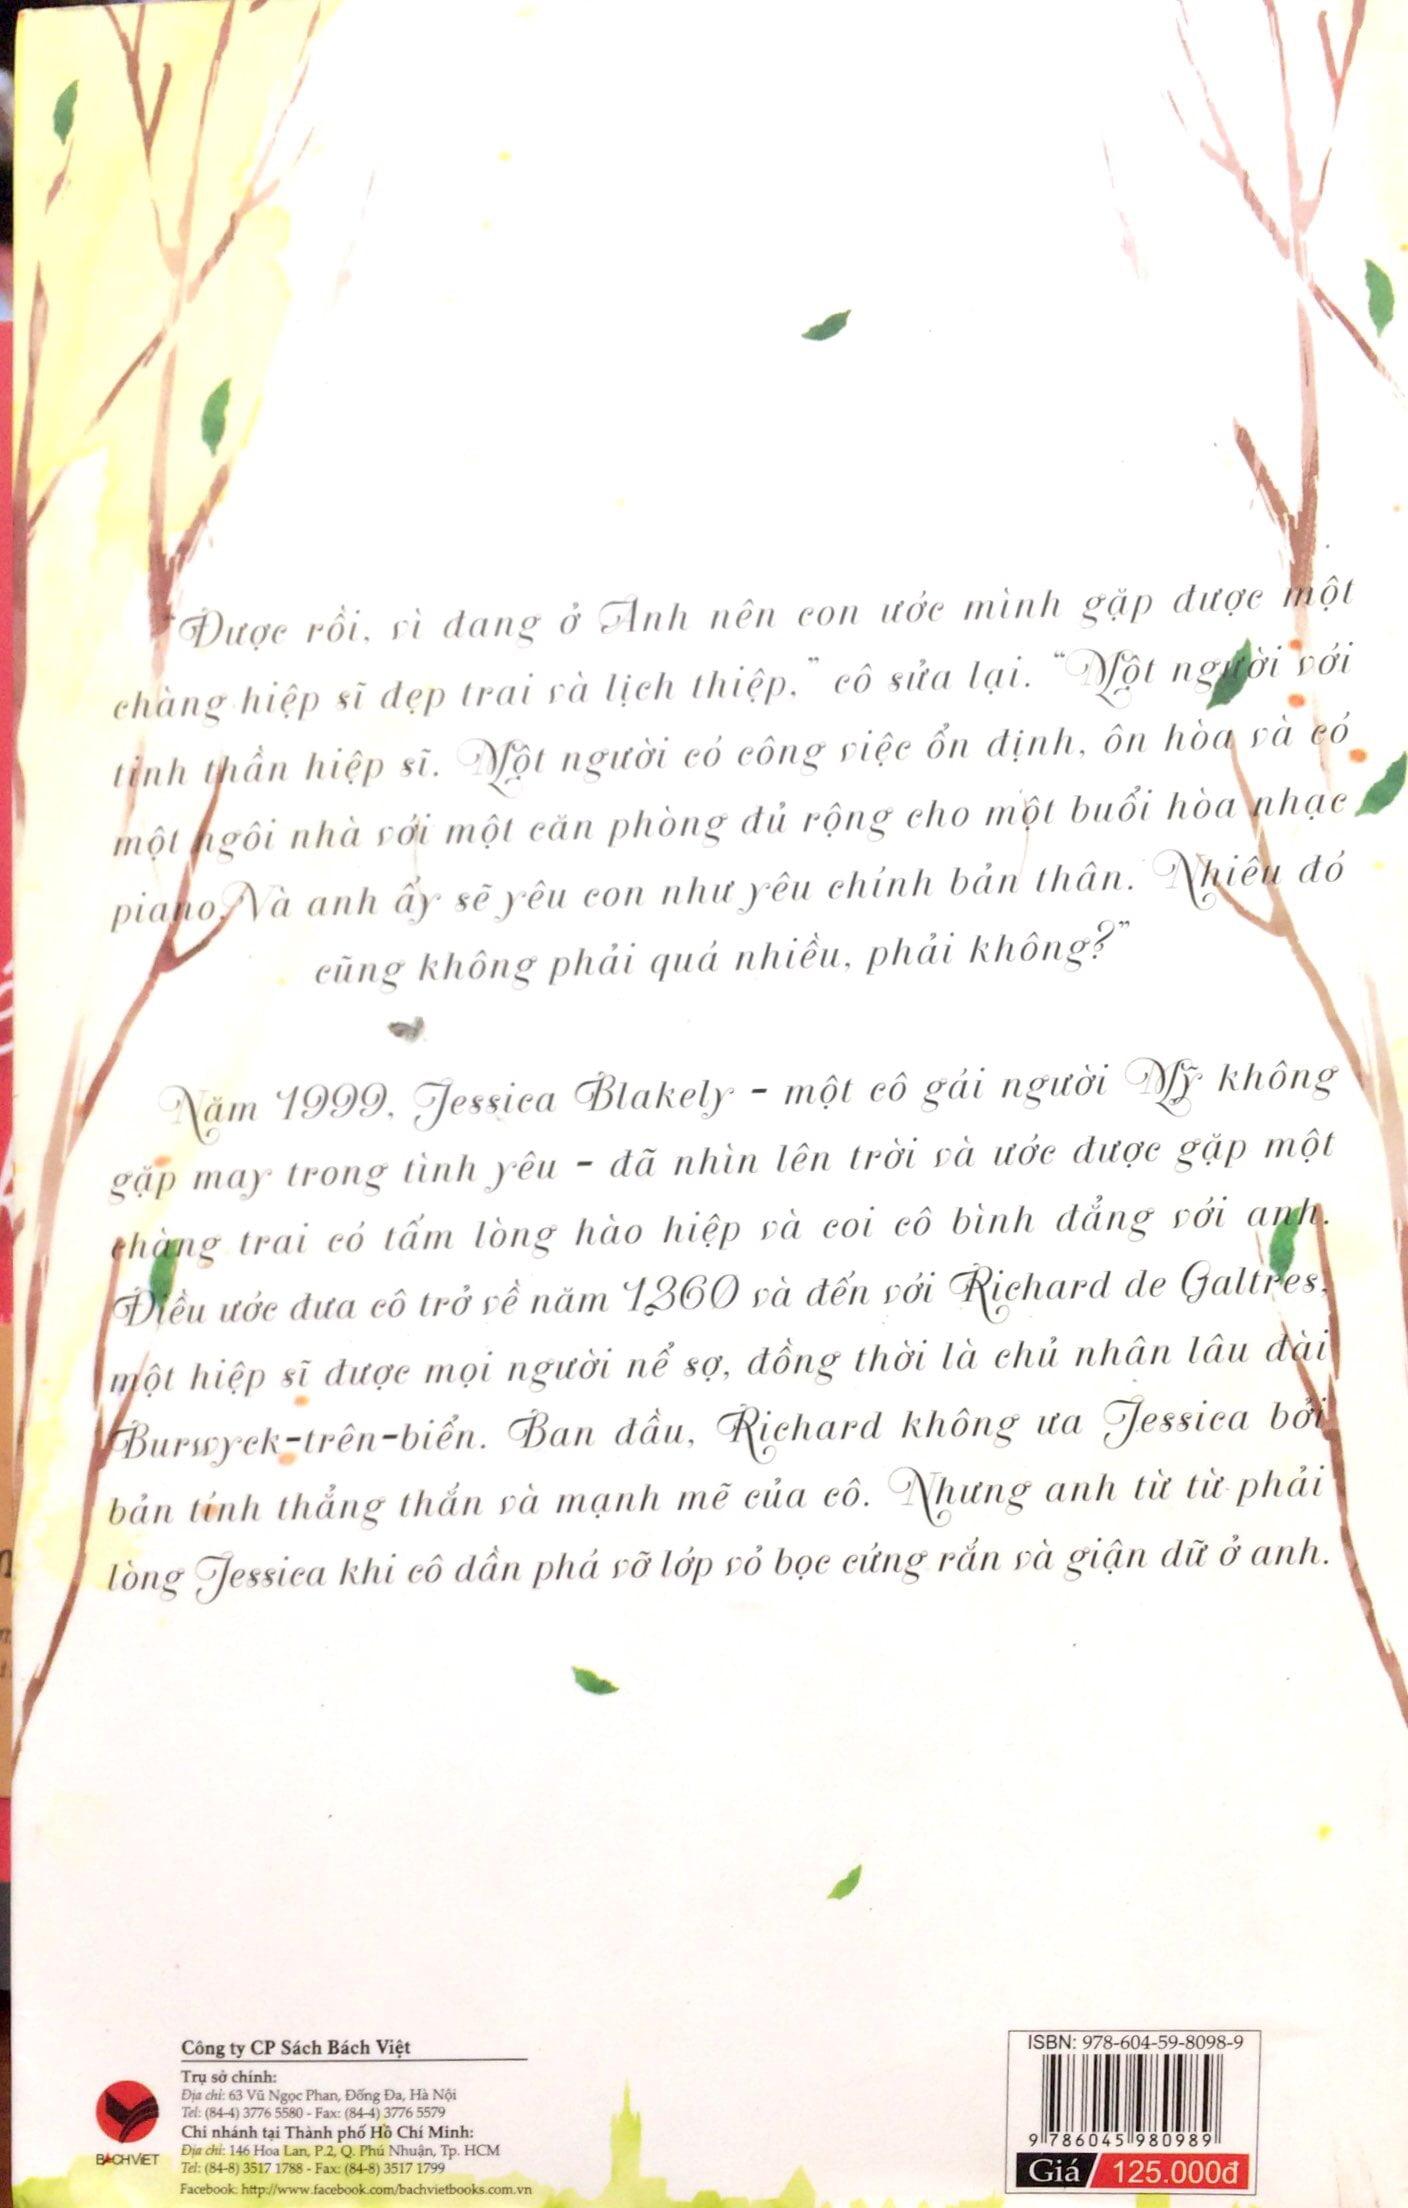 "Được rồi, vì đang ở Anh nên con ước mình gặp được một
chàng hiệp sĩ đẹp trai và lịch thiệp," cô sửa lại. "Một người với
tinh thần hiệp sĩ. Một người có công việc ổn định, ôn hòa và có
một ngôi nhà với một căn phòng đủ rộng cho một buổi hòa nhạc
piano. Và anh ấy sẽ yêu con như yêu chính bản thân. Nhiêu đó
cũng không phải quá nhiều, phải không?"
Năm 1999, Jessica Blakely - một cô gái người Mỹ không
gặp may trong tình yêu - đã nhìn lên trời và ước được gặp một
chàng trai có tấm lòng hào hiệp và coi cô bình đẳng với anh.
Điều ước đưa cô trở về năm 1260 và đến với Richard de Galtres,
một hiệp sĩ được mọi người nể sợ, đồng thời là chủ nhân lâu đài
Burwyck-trên-biển. Ban đầu, Richard không ưa Jessica bởi
bản tính thẳng thắn và mạnh mẽ của cô. Nhưng anh từ từ phải
lòng Jessica khi cô dần phá vỡ lớp vỏ bọc cứng rắn và giận dữ ở anh.
BACHVIET
Công ty CP Sách Bách Việt
Trụ sở chính:
Địa chỉ: 63 Vũ Ngọc Phan, Đống Đa, Hà Nội
Tel: (84-4) 3776 5580 - Fax: (84-4) 3776 5579
Chi nhánh tại Thành phố Hồ Chí Minh:
Địa chỉ: 146 Hoa Lan, P.2, Q. Phú Nhuận, Tp. HCM
Tel: (84-8) 3517 1788 - Fax: (84-8) 3517 1799
Facebook: http://www.facebook.com/bachvietbooks.com.vn
ISBN: 978-604-59-8098-9
9 786045 980989
Giá 125.000đ